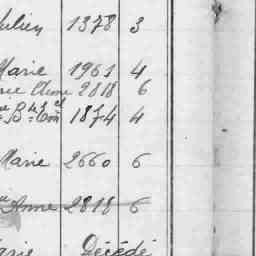 Julien 1378 3
Marie 1961 4
2818 6
1874 4
Marie 2660 6
Anne 2818 6
Décédé